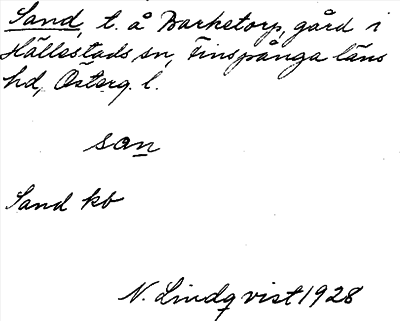 Sand, t. å Marketorp, gård i
Hällestads sn, Finspånga läns
hd, Österg. l.
san
Sand kb
N. Lindqvist 1928